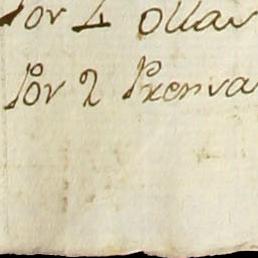 Por 4 ollas
Por 2 Prensa